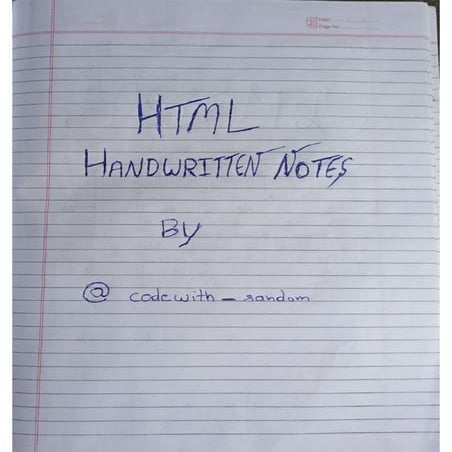 Date
Page No.
HTML
HANDWRITTEN NOTES
By
@ codewith_random